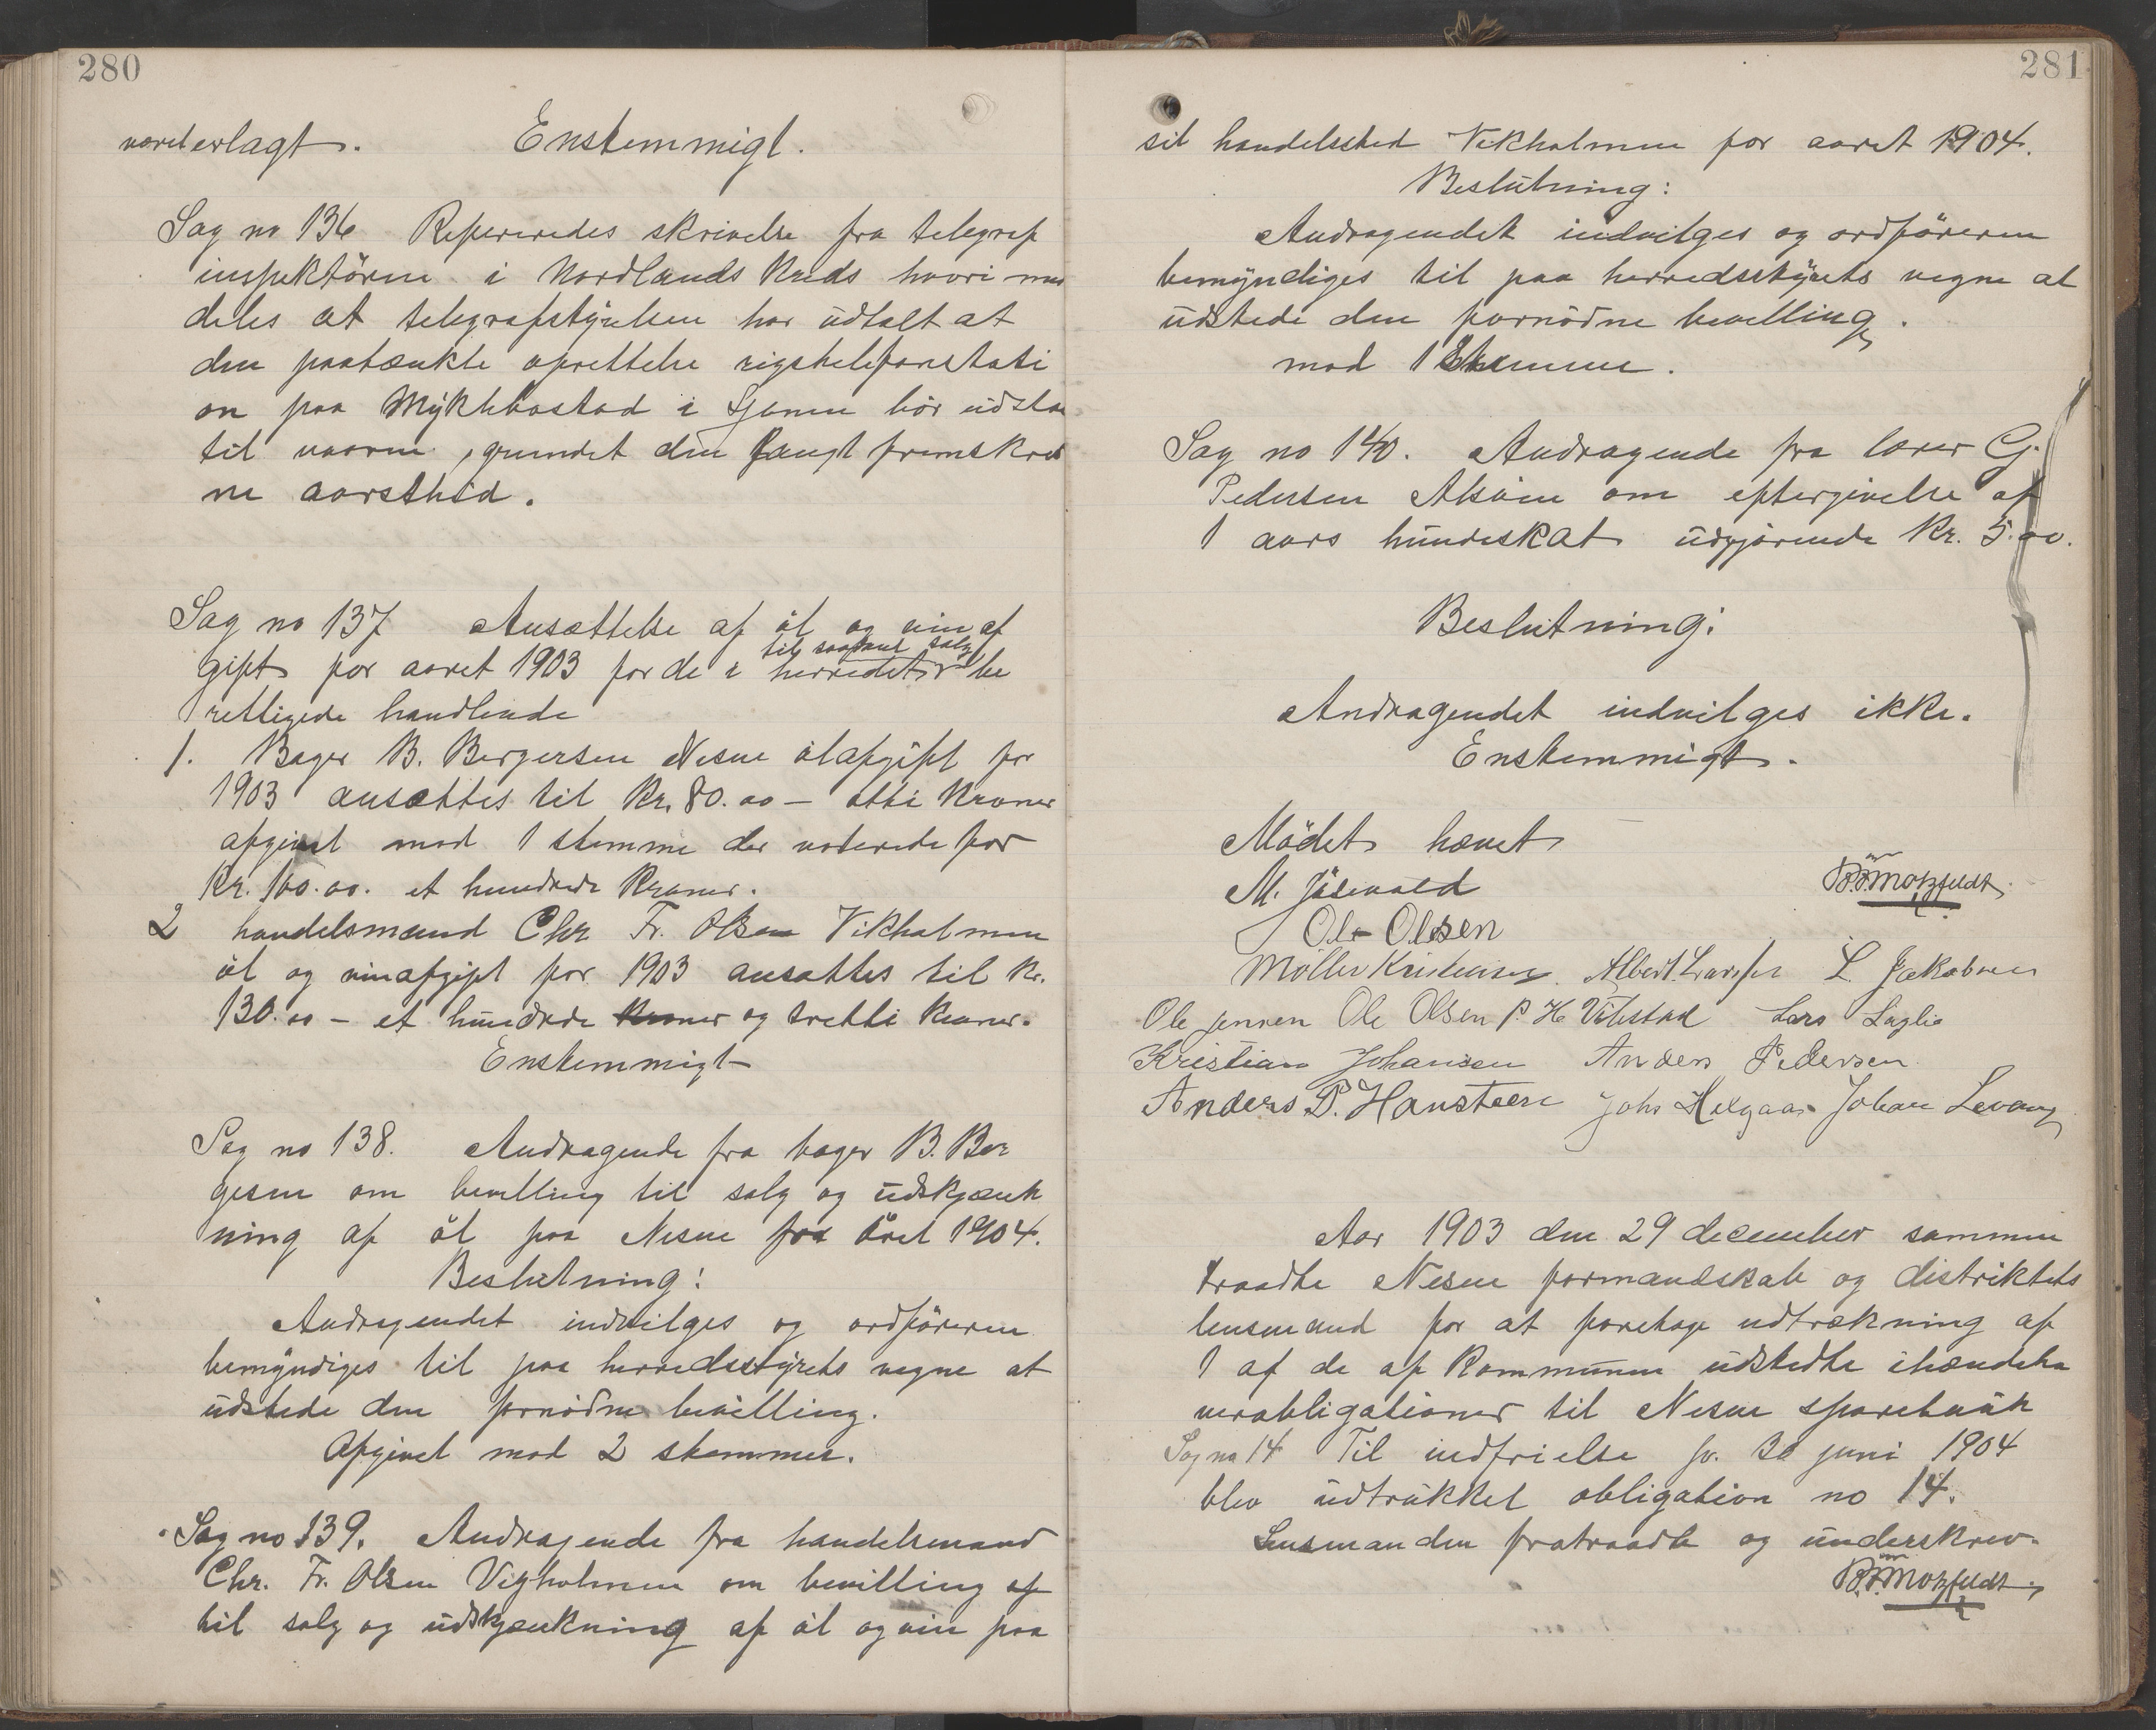 280
voret erlagt. Enstemmigt.
Sag no 136 Refereredes skrivelse fra telegraf
inspektören i Nordlands Kreds hvori med
deles at telegrafstyrelsen har udtalt at
den paatænkte oprettelse rigstelefonstati
on paa Myklebostad i Sjonen bör udstaa
til vaaren, grundet den langt fremskred
ne aarsthid.
Sag no 137 Ansættelse af öl og vinaf
til saadant salg
gift for aaret 1903 for de i herredet be
rettigede handlende
1. Bager B. Bergersen Nesne ölafgift for
1903 ansættes til Kr. 80.00 – otti Kroner
afgivet mod 1 stemme der voterede for
Kr. 100.00. et hundrede Kroner.
2 handelsmand Chr Fr. Olsen Vikholmen
öl og vinafgift for 1903 ansættes til Kr.
130.00 – et hundrede Kroner og tretti Kroner.
Enstemmigt
Sag no 138. Andragende fra bager B. Ber
gesen om bevilling til salg og udskjænk
ning af öl paa Nesne for året 1904.
Beslutning:
Andragendet indvilges og ordföreren
bemyndiges til paa herredsstyrets vegne at
udstede den fornödne bevilling.
Afgivet mod 2 stemmer.
Sag no 139. Andragende fra handelsmand
Chr. Fr. Olsen Vigholmen om bevilling af
til salg og udskjænkning af öl og vin paa
281
sit handelssted Vikholmen for aaret 1904.
Beslutning:
Andragendet indvilges og ordföreren
bemyndiges til paa herredsstyrets vegne at
udstede den fornödne bevilling.
mod 1 Stemme.
Sag no 140. Andragende fra lærer G.
Pedersen om eftergivelse af
1 aars hundeskat udgjörende Kr. 5.00.
Beslutning:
Andragendet indvilges ikke.
Enstemmigt.
Mödet hævet
M. B. Motzfeldt
Ole Olesen
Möller Kristensen. Albert Larssen L. Jakobsen
Ole Jensen Ole Olsen P. H. Lars
Kristian Johansen Anders Pedersen
Anders P. Hansteen Johs Johan Levang
Aar 1903 den 29 december sammen
traadte Nesne formandskab og distriktets
lensmand for at foretage udtrækning af
1 af de af Kommunen udstedte ihændeha
verobligationer til Nesne sparebank
Sag no 14 Til indfrielse pr. 30 juni 1904
blev udtrukket obligation no 14.
Lensmanden fratraadte og underskrev.
Motzfeldt